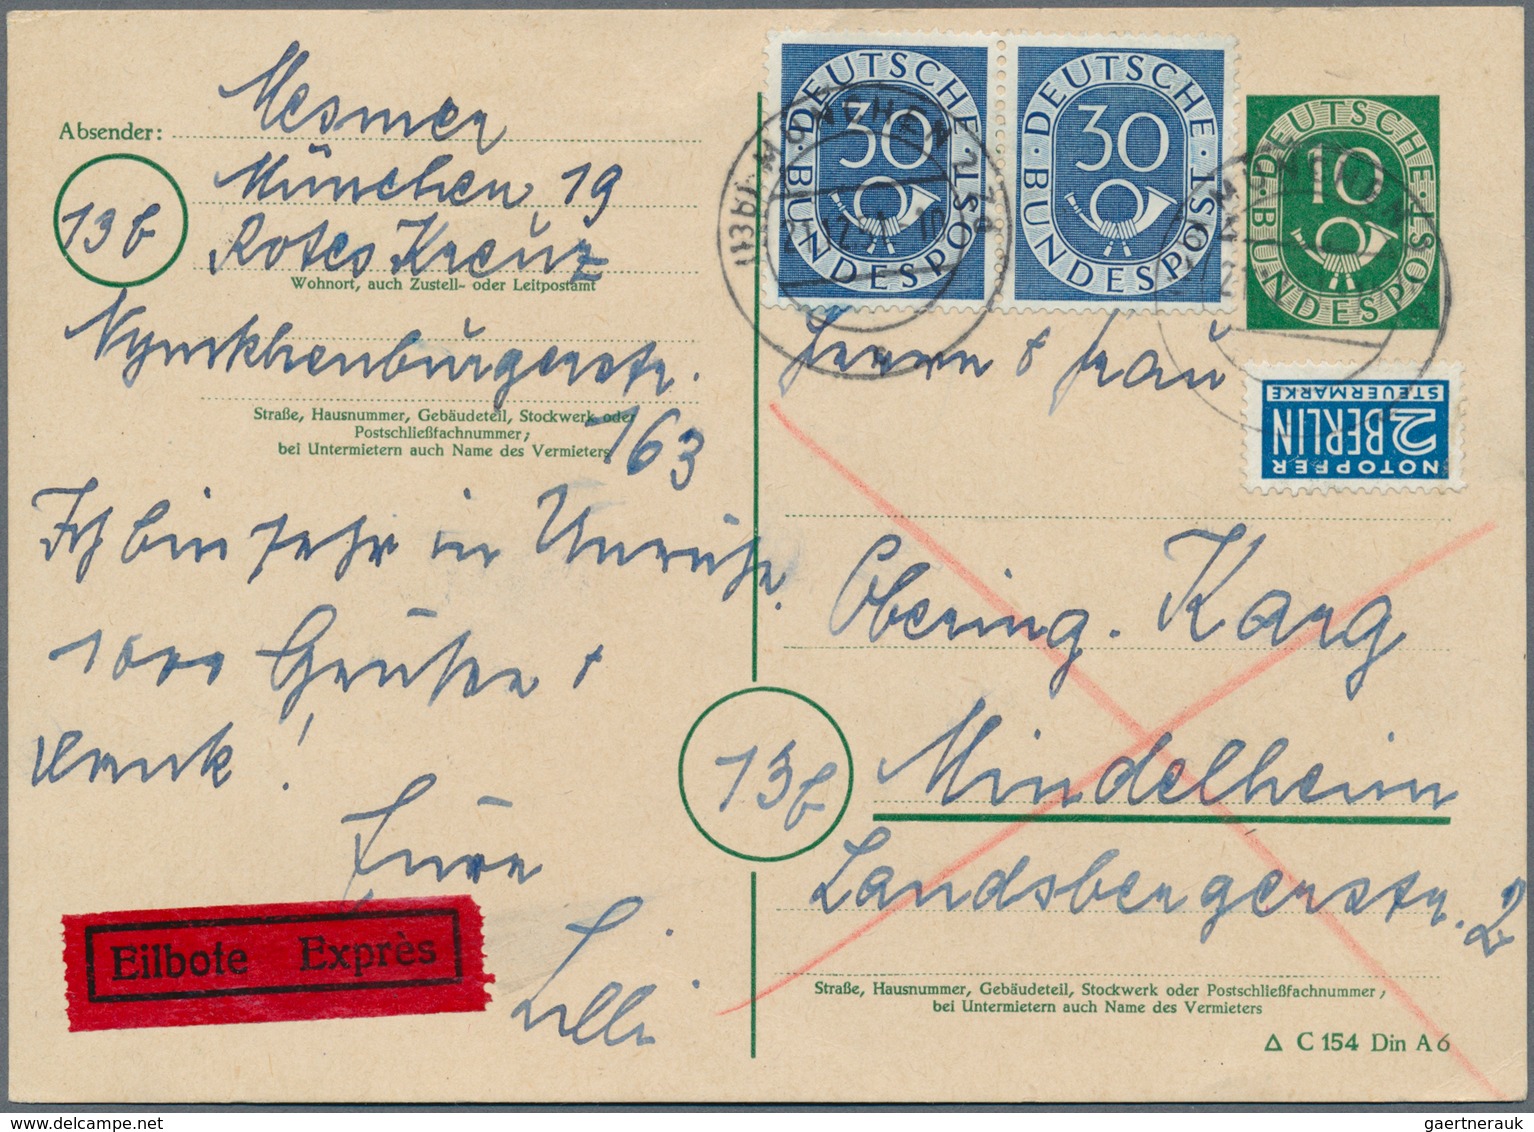 Absender: Mesmer
München 19
13b
Rotes Kreuz
Wohnort, auch Zustell- oder Leitpostamt
Nymphenburgerstr.
163
Straße, Hausnummer, Gebäudeteil, Stockwerk oder
Postschließfachnummer;
bei Untermietern auch Name des Vermieters
Ich bin sehr in Unruhe.
1000 Grüße +
Dank!
Eure
Lilli
Eilbote Exprès
DEUTSCHE BUNDESPOST 30
DEUTSCHE BUNDESPOST 30
DEUTSCHE BUNDESPOST 10
(13b) MÜNCHEN
NOTOPFER
2 BERLIN
STEUERMARKE
Herrn + Frau
Obering. Karg
13b
Mindelheim
Landsbergerstr. 2
Straße, Hausnummer, Gebäudeteil, Stockwerk oder Postschließfachnummer;
bei Untermietern auch Name des Vermieters
Δ C 154 Din A 6
gaertnerauk